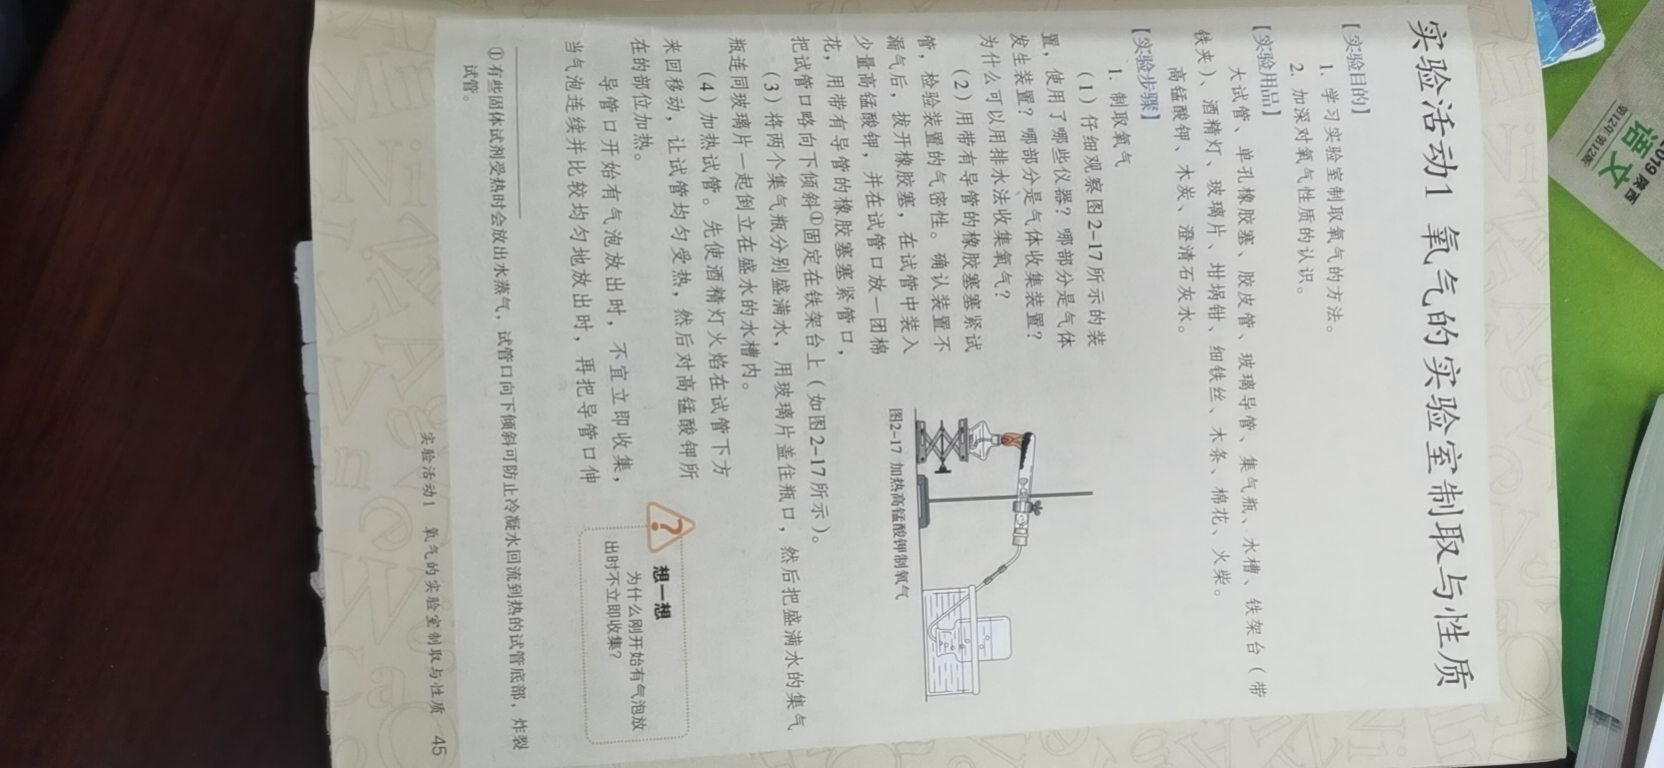 实验活动1 氧气的实验室制取与性质
【实验目的】
1. 学习实验室制取氧气的方法。
2. 加深对氧气性质的认识。
【实验用品】
大试管、单孔橡胶塞、胶皮管、玻璃导管、集气瓶、水槽、铁架台（带
铁夹）、酒精灯、玻璃片、坩埚钳、细铁丝、木条、棉花、火柴。
高锰酸钾、木炭、澄清石灰水。
【实验步骤】
1. 制取氧气
（1）仔细观察图2-17所示的装
置，使用了哪些仪器？哪部分是气体
发生装置？哪部分是气体收集装置？
为什么可以用排水法收集氧气？
（2）用带有导管的橡胶塞塞紧试
管，检验装置的气密性。确认装置不
漏气后，拔开橡胶塞，在试管中装入
少量高锰酸钾，并在试管口放一团棉
花，用带有导管的橡胶塞塞紧管口，
把试管口略向下倾斜①固定在铁架台上（如图2-17所示）。
图2-17 加热高锰酸钾制氧气
（3）将两个集气瓶分别盛满水，用玻璃片盖住瓶口，然后把盛满水的集气
瓶连同玻璃片一起倒立在盛水的水槽内。
（4）加热试管。先使酒精灯火焰在试管下方
来回移动，让试管均匀受热，然后对高锰酸钾所
在的部位加热。
导管口开始有气泡放出时，不宜立即收集，
当气泡连续并比较均匀地放出时，再把导管口伸
?
想一想
为什么刚开始有气泡放
出时不立即收集？
①有些固体试剂受热时会放出水蒸气，试管口向下倾斜可防止冷凝水回流到热的试管底部，炸裂
试管。
实验活动1 氧气的实验室制取与性质 45
语文